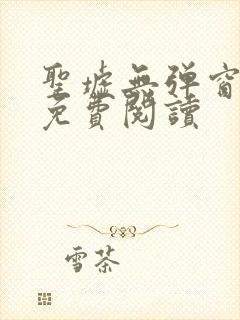 聖墟無彈窗
免費閱讀
雪茶